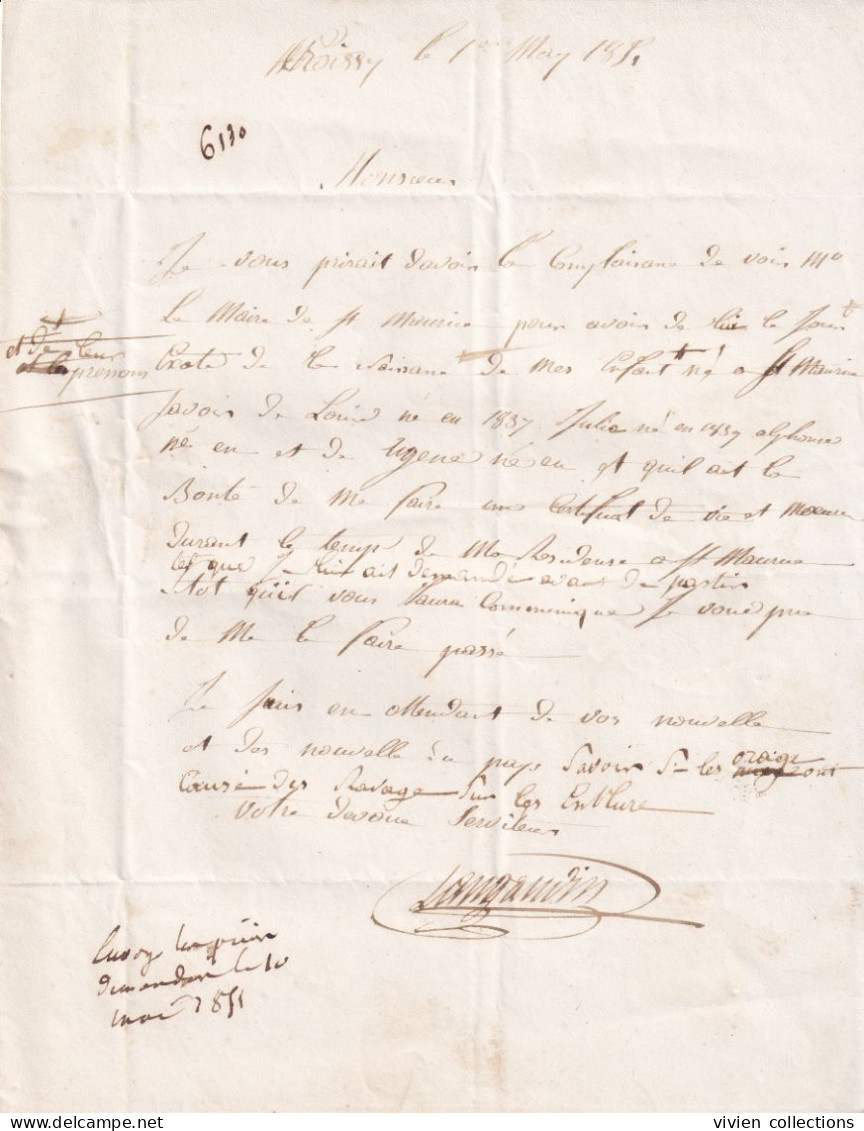 Roissy le 1er May 1851
6130
Monsieur
Je vous prirait davoir la Complaisane de voir Mr
Le Maire de St Maurice pour avoir de lui le Jour +
+
et de leur
prenoms
Exate de la Naissane de Mes Enfant né a St Maurice
Savoir de Louise né en 1837 Julie né en 1839 alphonse
né en et de Eugene né en et quil ait la
Bonté de Me faire une Certificat de vie et Moeur
durant le temps de Ma Residense a St Maurice
tel que Je lui ait demandé avant de partir
sitot qu'il vous laura Communiqué Je vous prie
de Me le faire passé
Je suis en attendant de vos nouvelle
et des nouvelle du pays Savoir Si les orage ont
Causé des Ravage Sur les
Votre devoué Serviteur
Envoye les pieces
demandées le 10
mai 1851
vivien collections